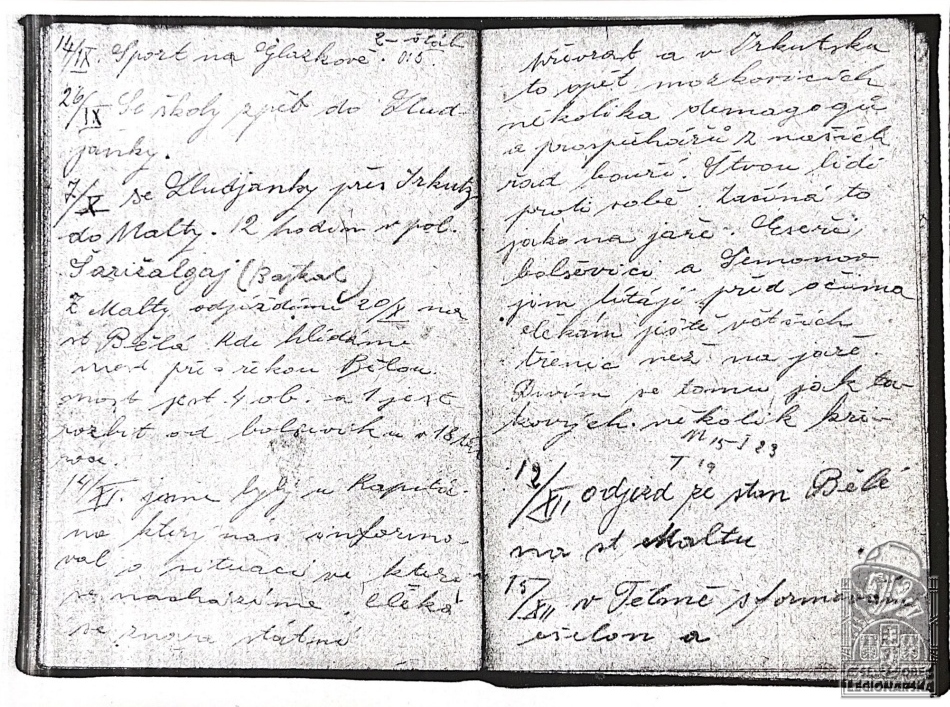 14/IX. Sport na Glazkově.
26/IX Se školy zpět do Slud-
jánky.
7/X se Sludjanky přes Irkutz
do Malty. 12 hodin v pol.
Šarižalgaj (Bajkal)
Z Malty odjíždíme 20/X na
st Bělá kde hlídáme
most přes řekou Bělou.
most jest 4 ob. a 1 jest
rozbit od bolševiku v 18
roce.
14/XI. jsme byly u Kapitá-
na který nás informo-
val o situaci ve které
se nacházíme. čeká
se znova státní
převrat a v Irkutska
to opět mozkovicích
několika demagogů
a prospěchářů z našich
řad bouří. Štvou lidi
proti sobě. Začíná to
jako na jaře. Eseři,
bolševici a Semenov
jim lítají před očima
čekám jistě větších
trenic než na jaře.
Divím se tomu jak ta-
kových několik kři-
12/XII odjezd ze stan Bělé
na st Maltu
15/XII v Telmě sformování
ešelon a
LEGIONÁŘSKÁ